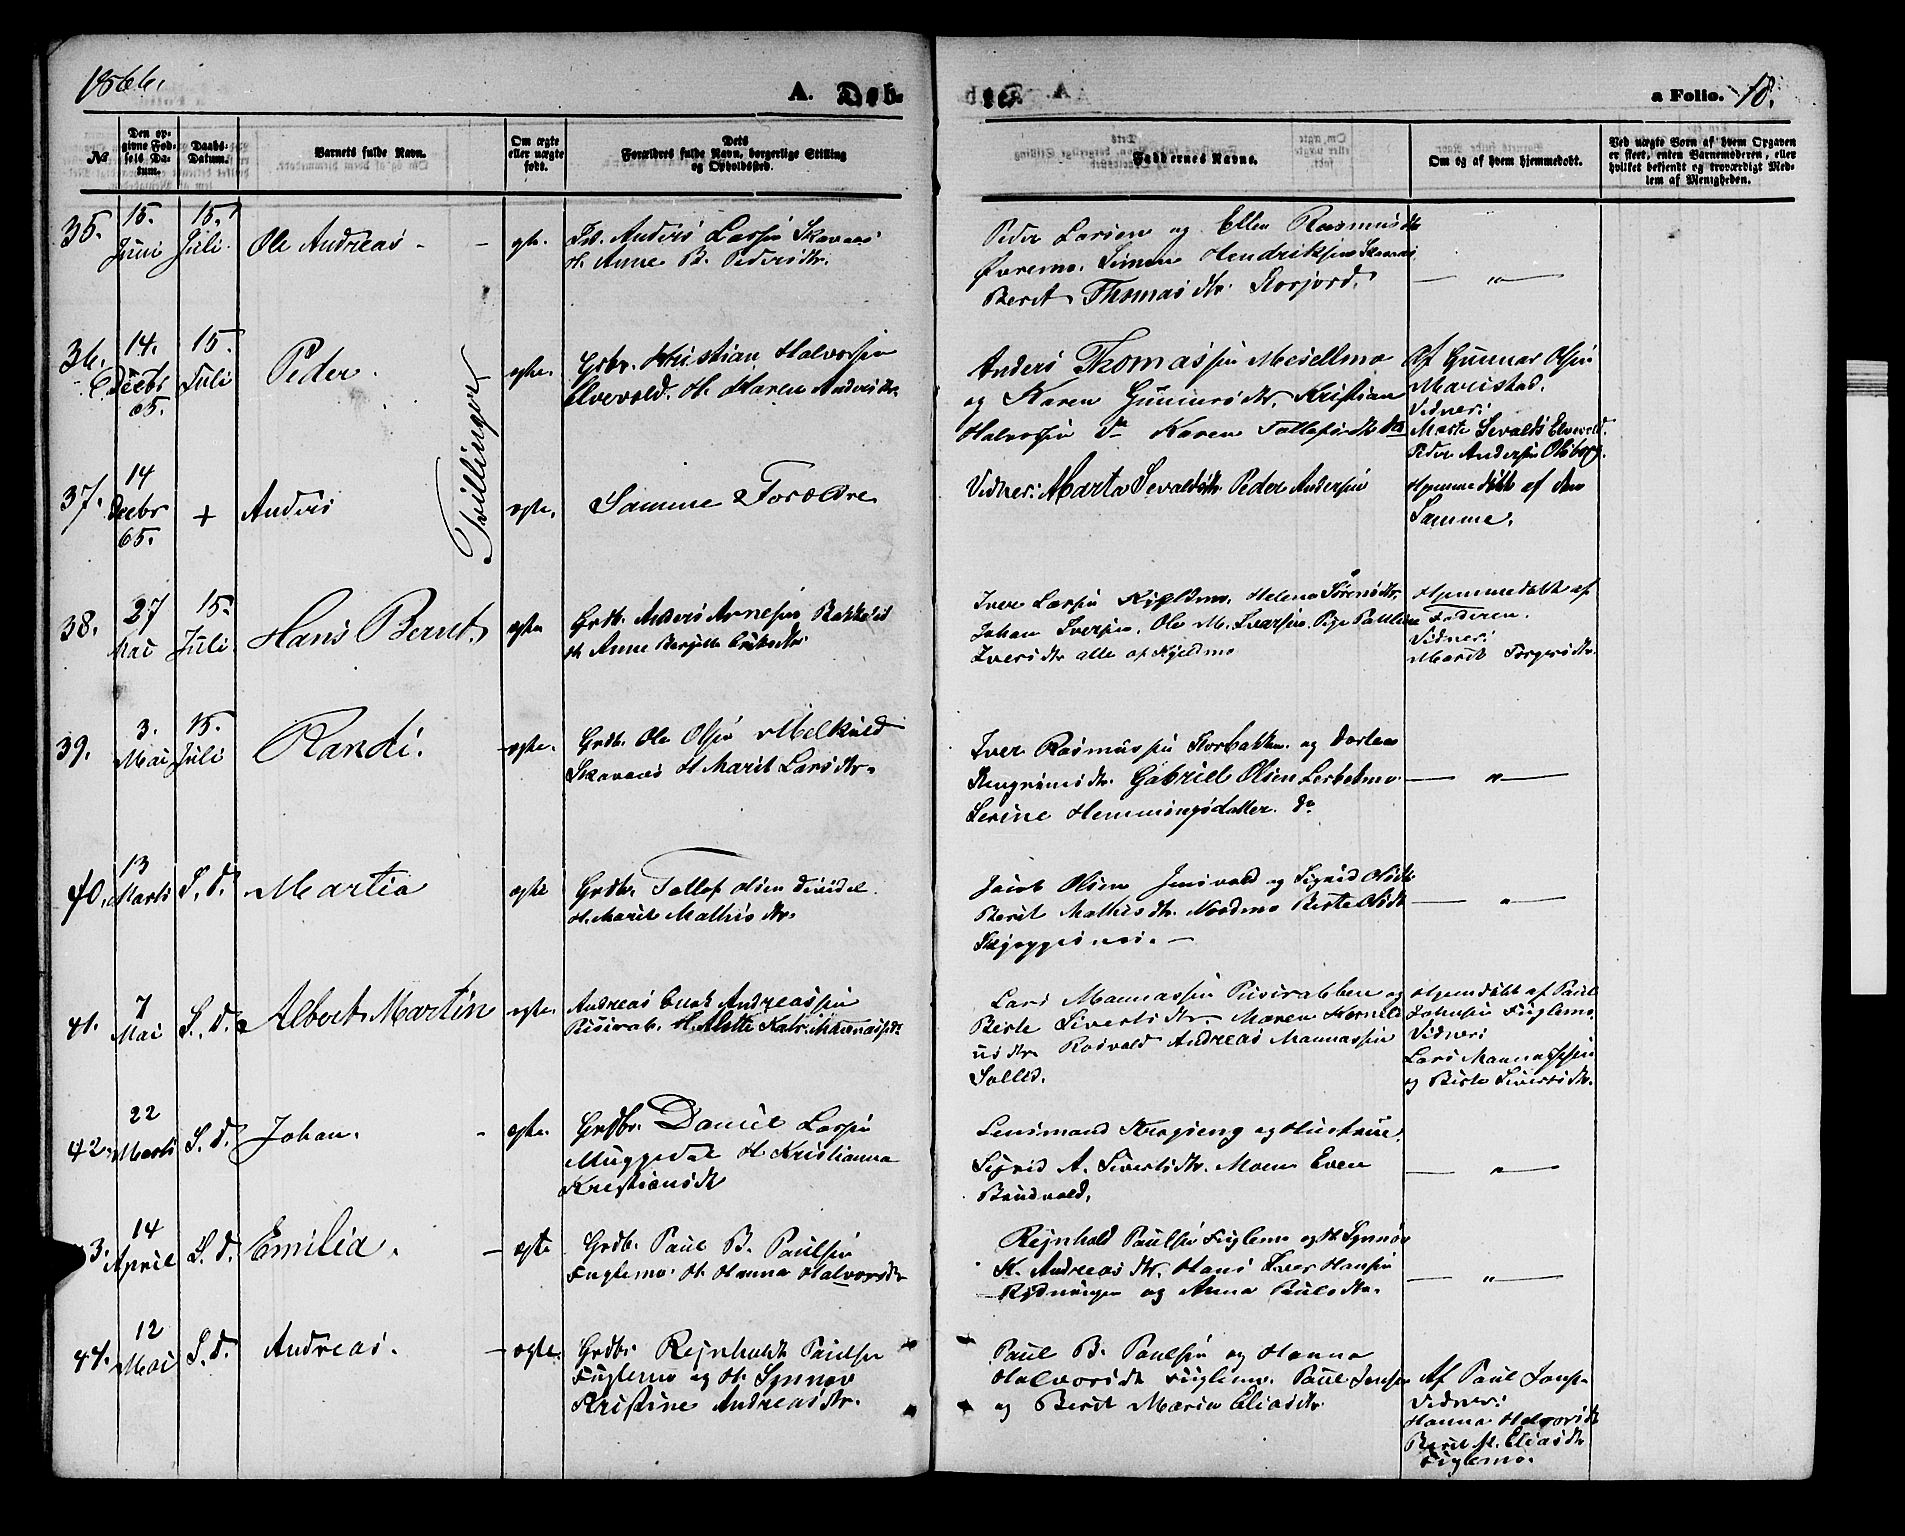 1866.
A. Døb-
te.
a Folio. 18.
№
Den opgivne Fødsels Datum.
Daabs-Datum.
Barnets fulde Navn.
Om ægte eller uægte født.
Dets Forældres fulde Navn, borgerlige Stilling og Opholdssted.
Faddernes Navne.
Om og af hvem hjemmedøbt.
Ved uægte Børn af hvem Opgaven er skeet, enten Barnemoderen, eller hvilket bekjendt og troværdigt Medlem af Menigheden.
35. 15. Juni 15. Juli Ole Andreas - - ægte.
Anders Larsen Skavnes
H. Anne B. Pedersdtr.
Peder Larsen og Ellen Rasmusdtr
Øvremo. Simon Hendriksen Skavnes
Beret Thomasdtr. Storjord.
— „ —
36. 14. Decbr 65. 15. Juli Peder. ægte.
Grbr. Kristian Halvorsen
Elvevold. H. Karen Andersdtr.
Anders Thomassen Mosellmo
og Karen Gunnersdtr. Kristian
Halvorsen do Karen Tollefsdtr do
Af Gunnar Olsen
Maristad.
Vidner:
Marte Sevalds Elvevold.
Peder Andersen Olsborg.
Tvillinger
37. 14 Decbr 65. + Anders ægte.
Samme Forældre
Vidner: Marta Sevaldsdtr Peder Andersen
Hjemmedøbt af den
Samme.
38. 27 Mai 15. Juli Hans Bernt. ægte
Grdb. Anders Arnesen Bakkelid
H. Anne Bergitte Eriksdtr
Iver Larsen Kjeldmo. Helena Sørensdtr.
Johan Iversen. Ole M. Ivarsen. Pige Pauline
Iversdtr alle af Kjeldmo
Hjemmedøbt af
Faderen.
Vidner:
Marit Torgersdtr.
39. 3. Mai 15. Juli Randi. ægte.
Grdb. Ole Olsen Melkild
Skavnes H. Marit Larsdtr.
Iver Rasmussen Storbakken og Dorten
Gabriel Olsen
Serine Hemmingsdatter. do
— „ —
40. 13 Marts S. d. Martia ægte
Grdbr. Tollef Olsen Dividal.
H. Marit Mathisdtr.
Jacob Olsen Jensvold og Sigrid Olsdtr
Berit Mathisdtr. Nordmo Berte Olsdtr
— „ —
41. 7 Mai S. d. Albert Martin ægte.
Andreas Andreassen
H. Alette Katr. Mannasdtr
Lars Mannassen og
Berte Sivertsdtr. Maren
Rosvold Andreas Mannassen
Hjemdøbt af Paul
Johnsen Fuglemo.
Vidner:
Lars Mannassen
og Berte Sivertsdtr.
42. 22 Marts S. d. Johan. - ægte.
Grdbr. Daniel Larsen
Muggedal H. Kristianna
Kristiansdtr
Lensmand og Hustrue.
Sigrid A. Sivertsdtr. Moen Even
Bundvold.
— „ —
3. 14 April S. d. Emilia. - ægte
Grdb. Paul B. Paulsen
Fuglemo. H. Hanna Halvorsdtr
Rejnhold Paulsen Fuglemo og H. Synnøv
K. Andreasdtr. Hans Iver Hansen
Rydningen og Anna Paulsdtr.
— „ —
44. 12 Mai S. d. Andreas. - ægte.
Grdb. Rejnholdt Paulsen
Fuglemo og H. Synnøv
Kristine Andreasdtr.
Paul B. Paulsen og Hanna
Halvorsdtr Fuglemo. Paul Jonsen
og Berit Maria Eliasdtr
Af Paul Jonsen
Vidner:
Hanna Halvorsdtr
Berit M. Eliasdtr
Fuglemo.